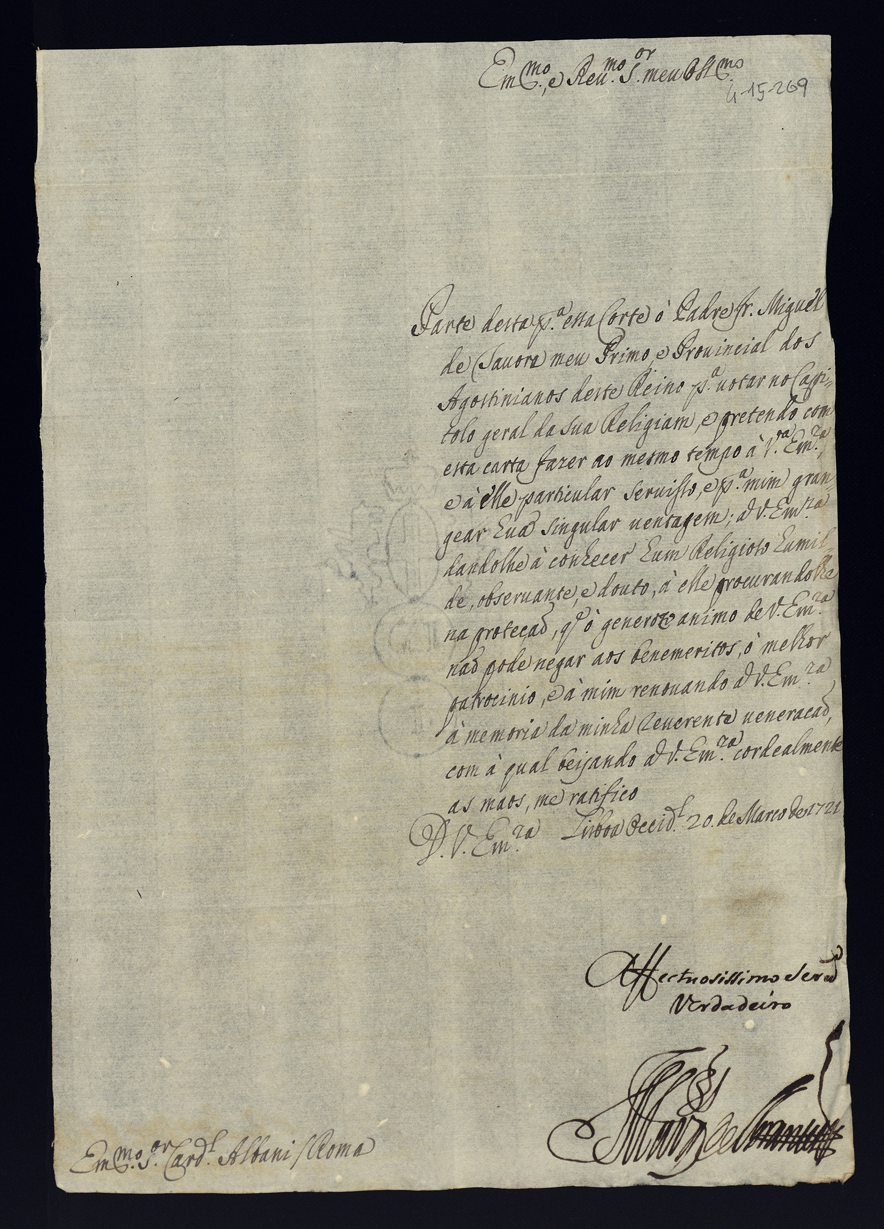 Em.mo e Reu.mo S.or meu
4-15-269
Parte desta p.a essa Corte ò Padre fr. Miguel
de Tauora meu Primo, e Prouincial dos
Agostinianos deste Reino p.a uotar no Capi=
tolo geral da sua Religiam, e pretendo com
esta carta fazer ao mesmo tempo à V.ra Em.ra,
e à elle particular seruisso, e p.a mim gran
gear hua singular uentagem; a V. Em.ra
dandolhe à conhecer hum Religioso humil
de, obseruante, e douto, à elle procurandolhe
na proteçaõ, q.e ò generozo animo de V. Em.ra
naõ pode negar aos benemeritos, ò melhor
patrocinio, e à mim renouando a V. Em.ra
à memoria da minha reuerente ueneraçaõ,
com à qual beijando a V. Em.ra cordealmente
as maos, me ratifico
D. V. Em.ra Lisboa Occid.l 20. de Março de 1721
Affectuosissimo Seruid.or
Verdadeiro
Em.mo S.or Card.l Albani / Roma